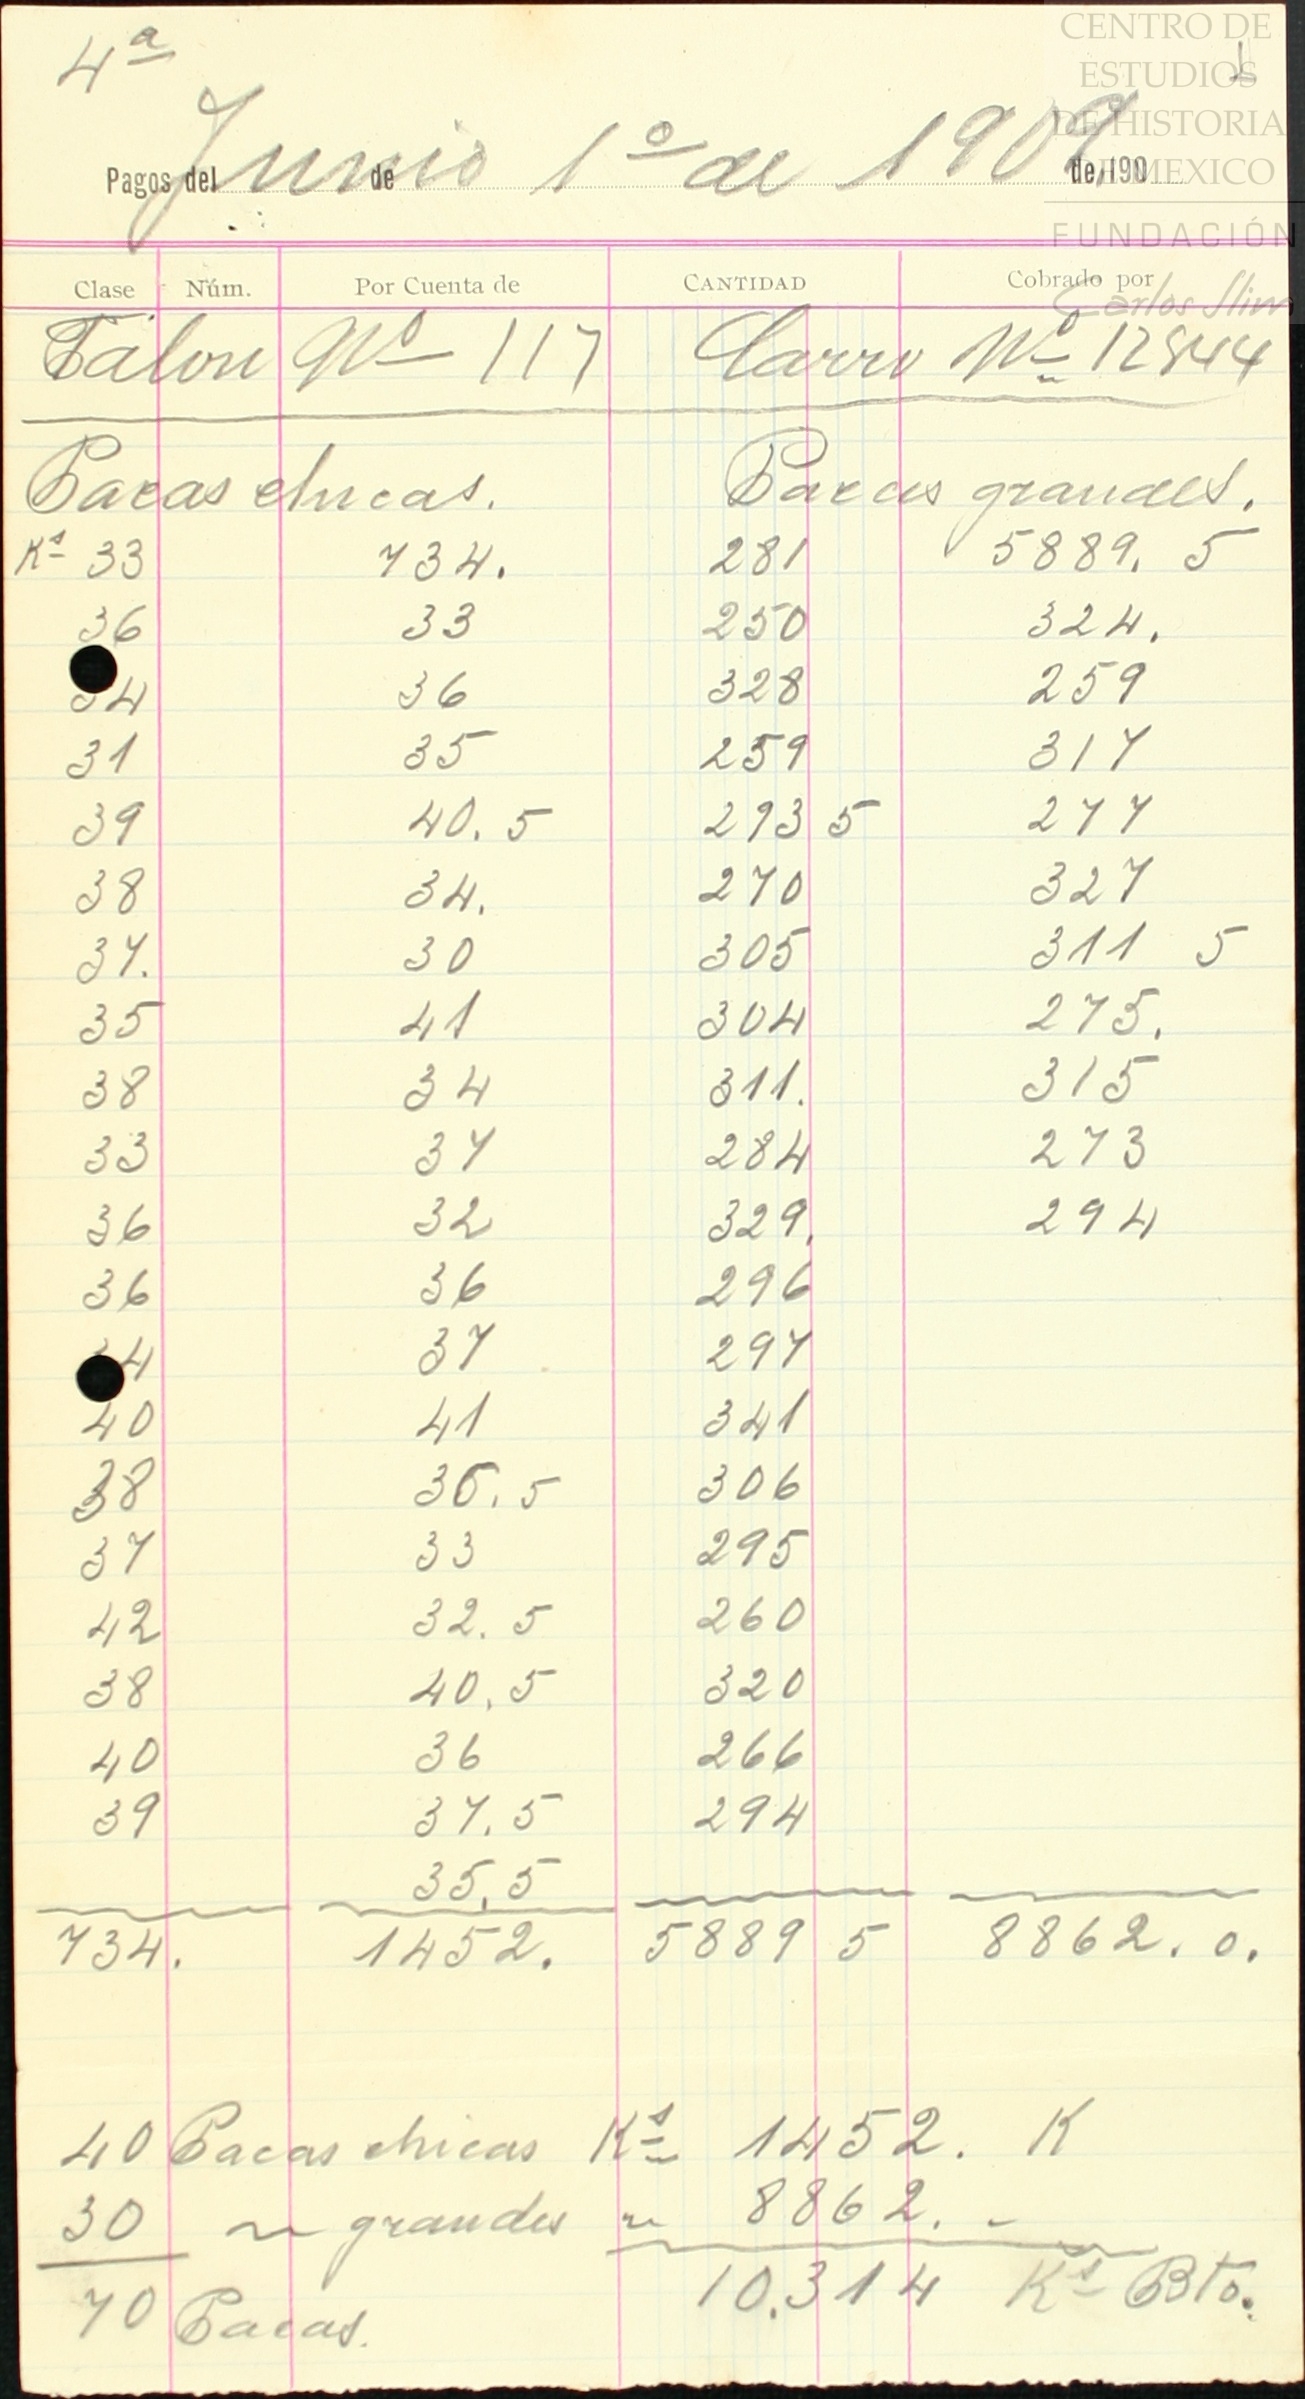 CENTRO DE
ESTUDIOS
DE HISTORIA
DE MEXICO
FUNDACIÓN
Carlos Slim
4ª 1
Pagos del de de 190
Junio 1º de 1909
Clase Núm. Por Cuenta de CANTIDAD Cobrado por
Talon Nº 117 Carro Nº 12844
Pacas chicas. Pacas grandes.
Kˢ 33 734. 281 5889. 5
36 33 250 324.
34 36 328 259
31 35 259 317
39 40. 5 293 5 277
38 34. 270 327
37. 30 305 311 5
35 41 304 275.
38 34 311. 315
33 37 284 273
36 32 329. 294
36 36 296
34 37 297
40 41 341
38 36. 5 306
37 33 295
42 32. 5 260
38 40. 5 320
40 36 266
39 37. 5 294
35. 5
734. 1452. 5889 5 8862. 0.
40 Pacas chicas Kˢ 1452. K
30 ~ grandes ~ 8862. -
70 Pacas. 10.314 Kˢ Bto.